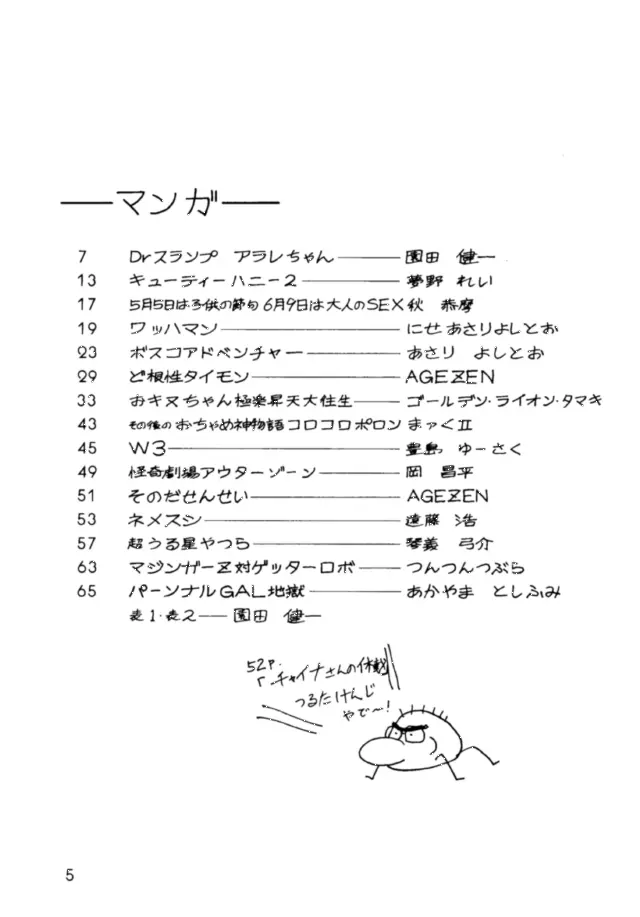 —マンガ—
7 Drスランプ アラレちゃん——園田 健一
13 キューティーハニー2——夢野 れい
17 5月5日は子供の節句6月9日は大人のSEX 秋 恭摩
19 ワッハマン——にせ あさりよしとお
23 ボスコアドベンチャー——あさり よしとお
29 ど根性タイモン——AGEZEN
33 おキヌちゃん極楽昇天大往生——ゴールデン・ライオン・タマキ
43 その後のおちゃめ神物語コロコロポロン まァくII
45 W3——豊島 ゆーさく
49 怪奇劇場アウターゾーン——岡 昌平
51 そのだせんせい——AGEZEN
53 ネメスシ——遠藤 浩
57 超うる星やつら——琴義 弓介
63 マジンガーZ対ゲッターロボ——つんつんつぶら
65 パーソナルGAL地獄——あかやま としふみ
表1・表2——園田 健一
52P.
「チャイナさんの休戦
つるたけんじ
やで〜!
5